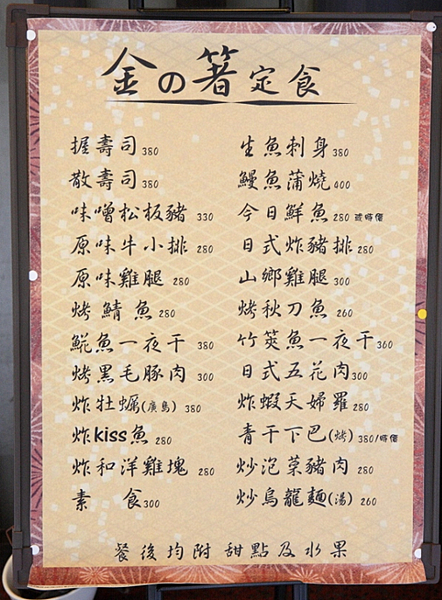 金の箸定食
握壽司380
散壽司380
味噌松板豬 330
原味牛小排 280
原味雞腿 280
烤鯖魚 280
鯤魚一夜干 380
烤黑毛豚肉 300
炸牡蠣(廣島) 380
炸kiss魚 280
炸和洋雞塊 280
素 食300
生魚刺身380
鰻魚蒲燒400
今日鮮魚280 視時價
日式炸豬排280
山鄉雞腿300
烤秋刀魚 260
竹筴魚一夜干360
日式五花肉300
炸蝦天婦羅280
青干下巴(烤)380/時價
炒泡菜豬肉 280
炒烏龍麵(湯) 260
餐後均附 甜點及水果